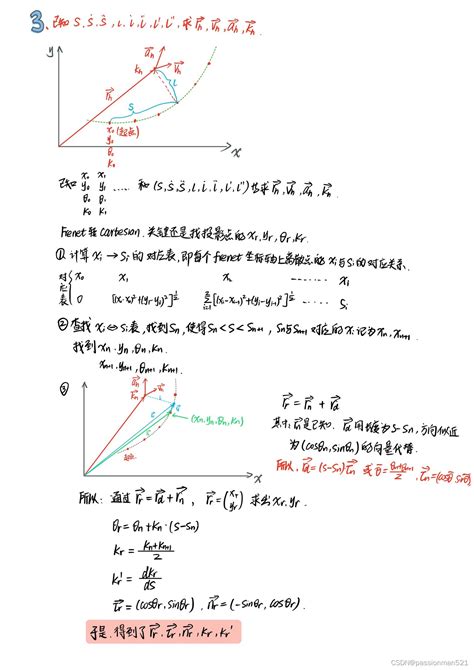 3、已知 S, Ṡ, S̈, l, l̇, l̈, l', l'', 求 r⃗h, v⃗h, a⃗h, kh.
y
a⃗h
kh
v⃗h
r⃗h
l
S
x0 (起点)
y0
θ0
k0
x
已知 x0 x1
y0 y1
θ0 θ1
k0 k1
...... 和 (S, Ṡ, S̈, l, l̇, l̈, l', l'') 去求 r⃗h, v⃗h, a⃗h, kh.
Frenet转cartesian. 关键还是找投影点的 xr, yr, θr, kr.
① 计算 xi → Si 的对应表, 即每个frenet坐标轴上离散点的 xi与Si的对应关系.
对应表
x0 x1 ...... xi
0 [(x1-x0)²+(y1-y0)²]^½ Σ[(xi-xi-1)²+(yi-yi-1)²]^½ ...... Si
② 查找 xi ⇔ Si表, 找到Sn, 使得 Sn < S < Sn+1, Sn与Sn+1 对应的xi记为xn, xn+1.
找到xn, yn, θn, kn.
xn+1, yn+1, θn+1, kn+1.
③
a⃗h
v⃗h
kh
(xn, yn, θn, kn)
起点
x
r⃗r = r⃗n + r⃗d
其中: r⃗n是已知. r⃗d 用模为 S-Sn, 方向近似
为 (cosθn, sinθn) 的向量代替.
所以, r⃗d = (S-Sn)τ⃗n 或
所以: 通过 r⃗r = r⃗d + r⃗n, r⃗r = (xr yr) 求出 xr, yr.
θr = θn + kn·(S-Sn)
kr = (kn+kn+1)/2
kr' = dkr/ds
τ⃗r = (cosθr, sinθr), n⃗r = (-sinθr, cosθr).
于是, 得到了 r⃗r, τ⃗r, n⃗r, kr, kr'
CSDN@passionman521